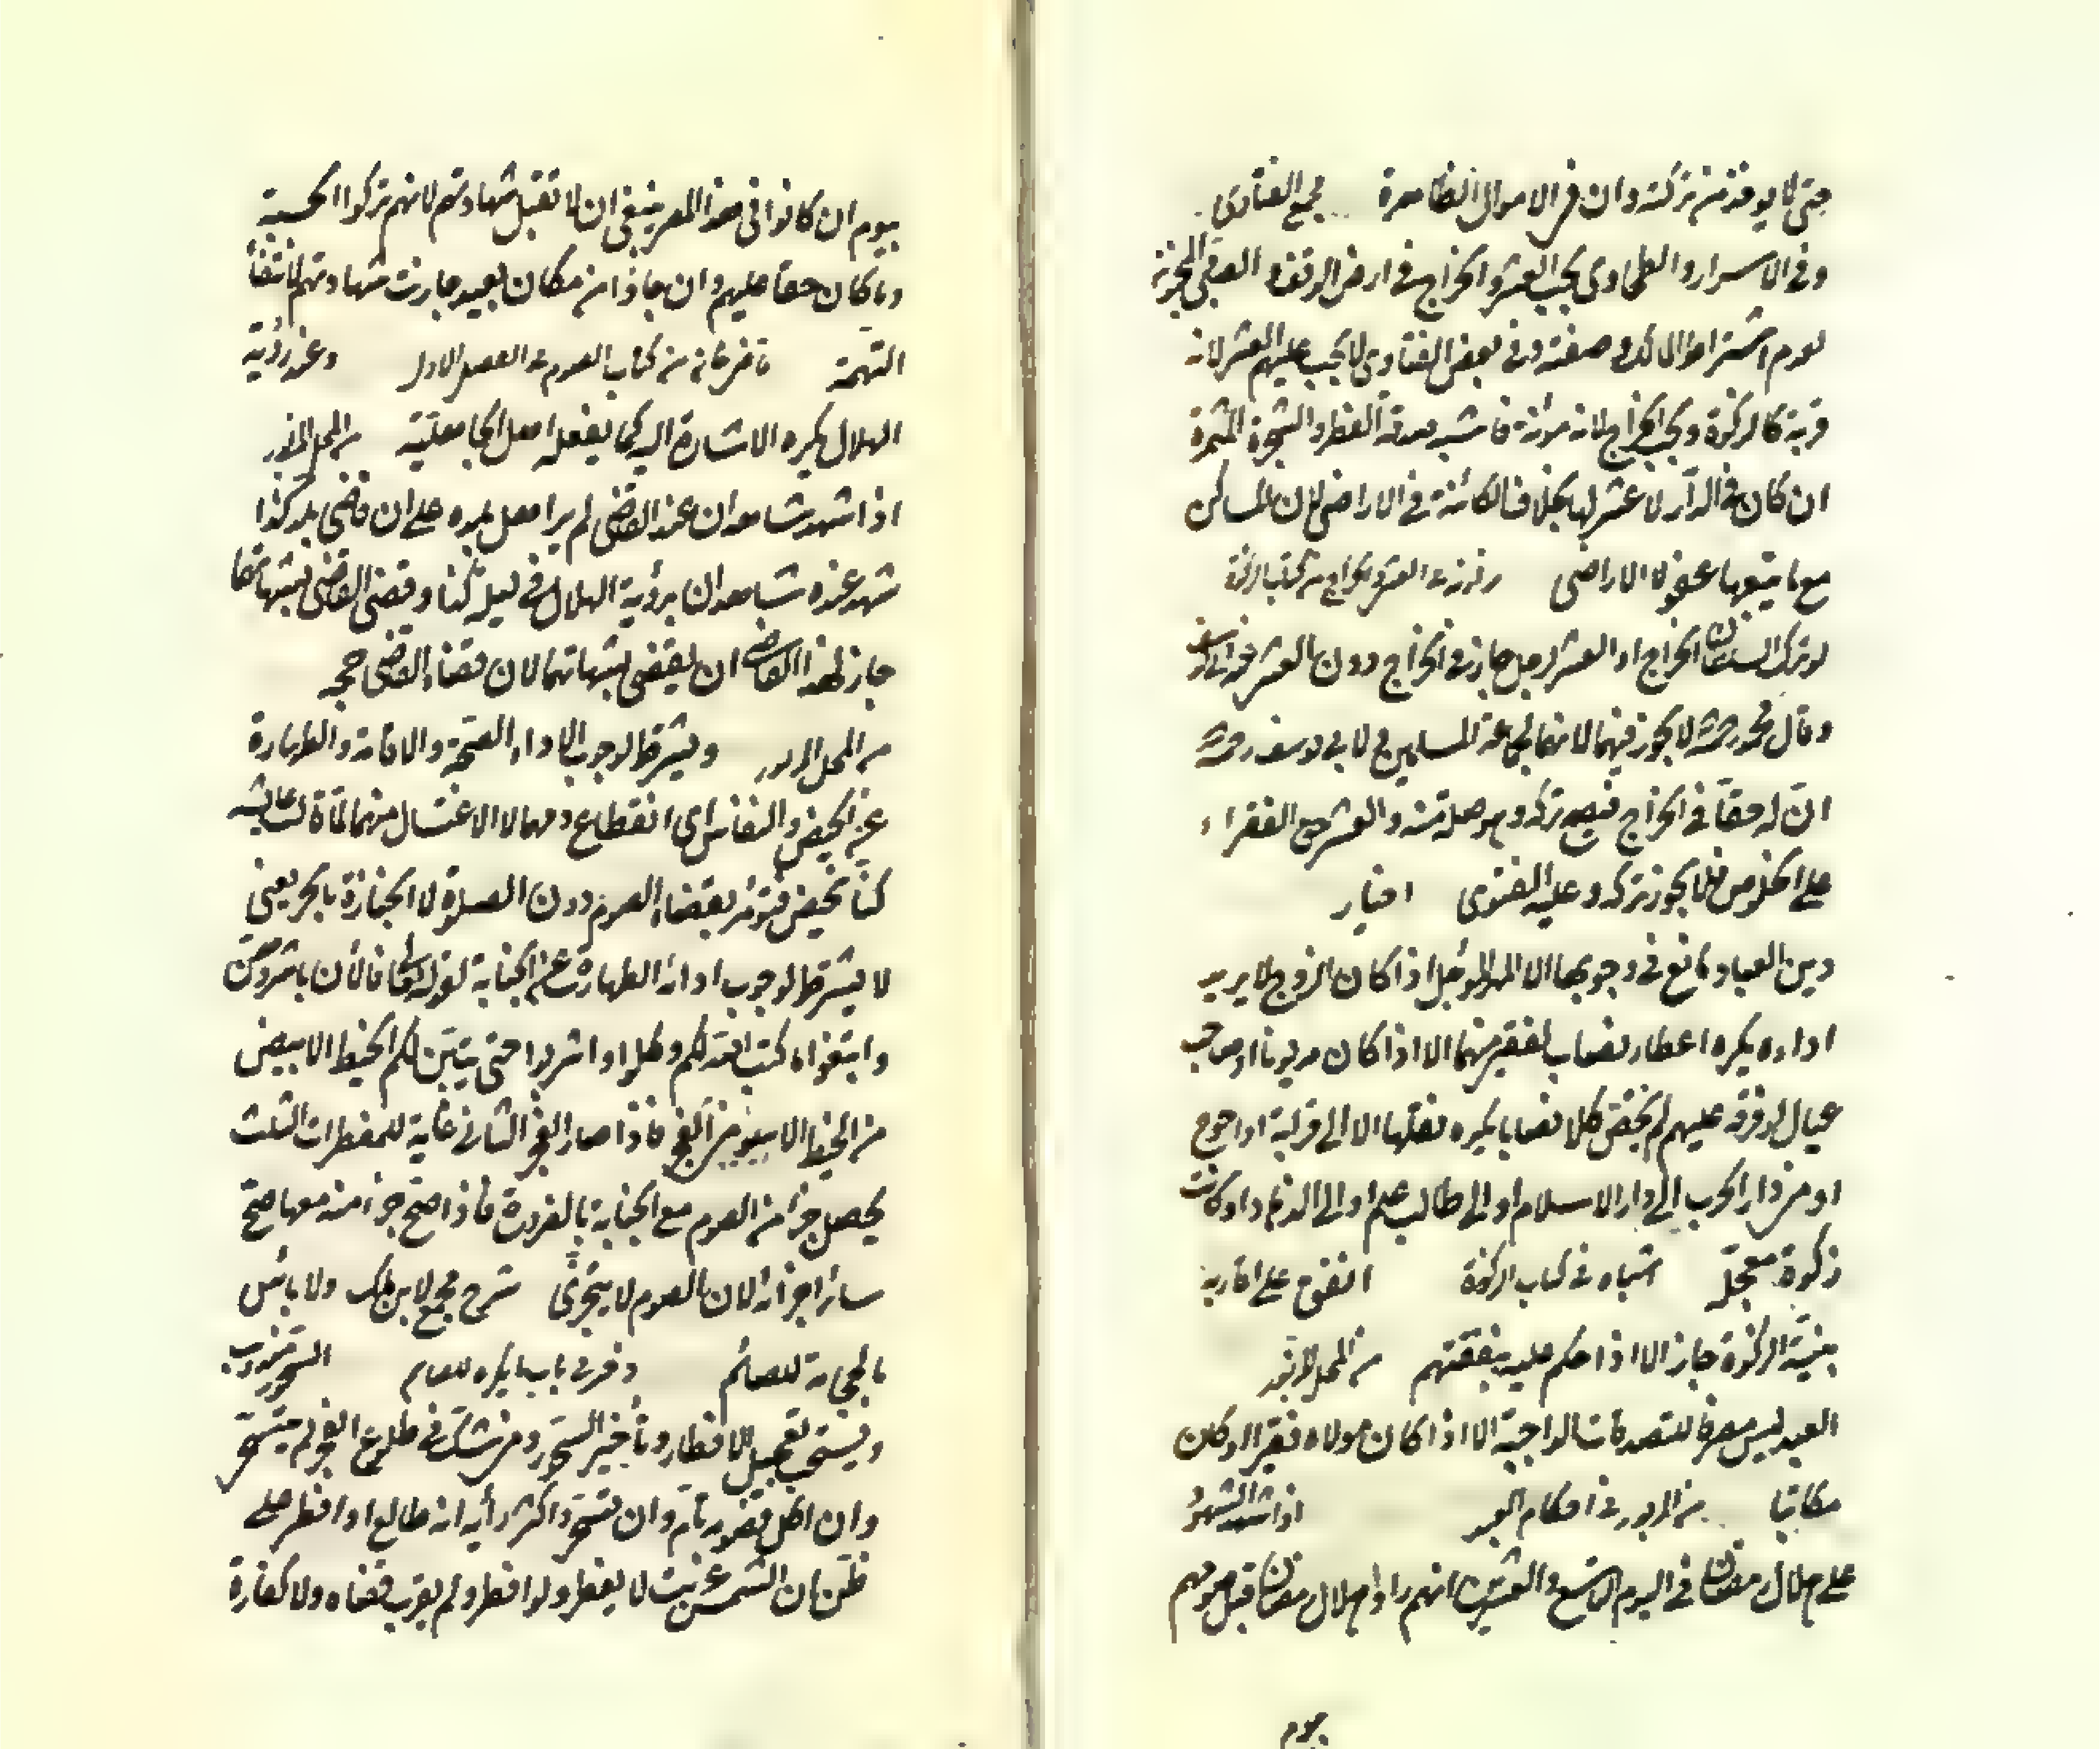 حتى لا يوخذ من تركته وان في الاموال الظاهرة مجمع الفتاوى
وفي الاسرار والطحاوى يجب العشر والخراج في ارض الوقف
لعدم اشتراط المالك وصفته وفي بعض الفتاوى لا يجب عليهم العشر لانه
قربة كالزكوة ويجب الخراج لانه مؤنة فاشبه صدقة الفطر والشجرة المثمرة
ان كان في الدار لا عشر لها بخلاف الكائنة في الاراضى لان المساكن
مع ما يتبعها عفو لا الاراضى العشر والخراج من كتاب الزكوة
لو ترك السلطان الخراج او العشر لرجل جاز في الخراج دون العشر عند ابى يوسف
وقال محمد رحمه الله لا يجوز فيهما لانهما لجماعة المسلمين لابى يوسف رحمه الله
ان له حقا في الخراج فيصح تركه وهو صلة منه والعشر حق الفقراء
على الخلوص فلا يجوز تركه وعليه الفتوى اختيار
دين العباد مانع في وجوبها الا المهر المؤجل اذا كان الزوج لا يريد
اداءه يكره اعطاء نصاب لفقير منهما الا اذا كان مديونا او صاحب
عيال لو فرقه عليهم لم يخص كلا نصابا يكره نقلها الا الى قرابة او احوج
او من دار الحرب الى دار الاسلام او الى طالب علم او الى الزهاد او كانت
زكوة معجلة اشباه في كتاب الزكوة انفق على اقاربه
بنية الزكوة جاز الا اذا حكم عليه بنفقتهم من المحل المزبور
العبد ليس مصرفا للصدقات الواجبة الا اذا كان مولاه فقيرا او كان
مكاتبا من المزبور في احكام العبد اذا شهد الشهود
على هلال رمضان في اليوم التاسع والعشرين انهم راوا هلال رمضان قبل صومهم
بيوم
بيوم ان كانوا في هذا المصر ينبغى ان لا تقبل شهادتهم لانهم تركوا الحسبة
وما كان حقا عليهم وان جاؤا من مكان بعيد جازت شهادتهم لانتفاء
التهمة قاضيخان من كتاب الصوم في الفصل الاول وعند رؤية
الهلال يكره الاشارة اليه كما يفعله اهل الجاهلية من المحل المزبور
اذا شهد شاهدان عند القاضى لم ير اهل بلده على ان قاضى بلد كذا
شهد عنده شاهدان برؤية الهلال في ليلة كذا وقضى القاضى بشهادتهما
جاز لهذا القاضى ان يقضى بشهادتهما لان قضاء القاضى حجة
من المحل المزبور ويشترط لوجوب الاداء الصحة والاقامة والطهارة
عن الحيض والنفاس اى انقطاع دمهما لا الاغتسال منهما لقول عايشة
كنا نحيض فنؤمر بقضاء الصوم دون الصلوة لا الجنازة بالجر يعنى
لا يشترط لوجوب ادائه الطهارة عن الجنابة لقوله تعالى فالآن باشروهن
وابتغوا ما كتب الله لكم وكلوا واشربوا حتى يتبين لكم الخيط الابيض
من الخيط الاسود من الفجر فاذا صار الفجر الثانى غاية للمفطرات الثلث
يحصل جزأ من الصوم مع الجنابة بالضرورة فاذا صح جزأ منه معها صح
سائر اجزائه لان الصوم لا يتجزى شرح مجمع لابن ملك ولا بأس
بالحجامة للصائم في باب ما يكره للصائم السحور مندوب
ويستحب تعجيل الافطار وتأخير السحور ومن شك في طلوع الفجر لم يتسحر
وان اكل فصومه تام وان تسحر واكثر رأيه انه طالع او افطر على
ظن ان الشمس غربت لا يفطر ولو افطر ولم يغرب قضاه ولا كفارة